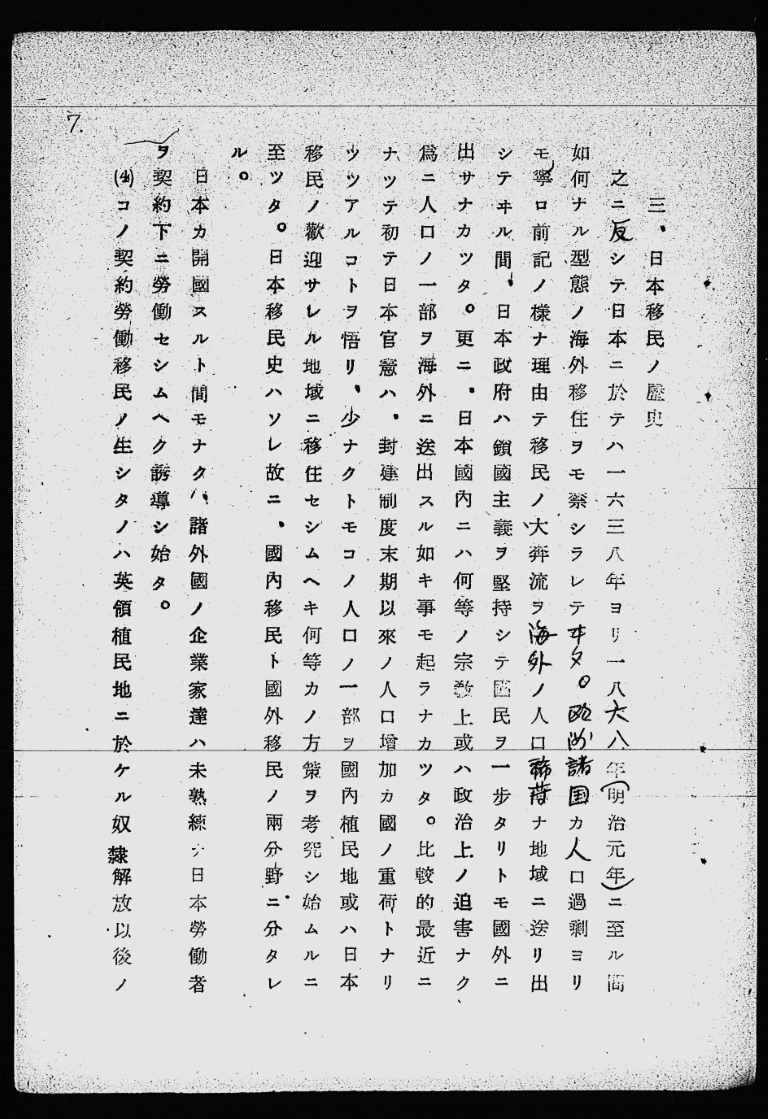 7.
三、日本移民ノ歴史
之ニ反シテ日本ニ於テハ一六三八年ヨリ一八六八年(明治元年)ニ至ル間
如何ナル型態ノ海外移住ヲモ禁シラレテヰタ。欧洲諸国カ人口過剰ヨリ
モ寧ロ前記ノ様ナ理由テ移民ノ大奔流ヲ海外ノ人口稀薄ナ地域ニ送リ出
シテヰル間、日本政府ハ鎖國主義ヲ堅持シテ國民ヲ一歩タリトモ國外ニ
出サナカツタ。更ニ、日本國内ニハ何等ノ宗敎上或ハ政治上ノ迫害ナク
爲ニ人口ノ一部ヲ海外ニ送出スル如キ事モ起ラナカツタ。比較的最近ニ
ナツテ初テ日本官憲ハ、封建制度末期以來ノ人口増加カ國ノ重荷トナリ
ツツアルコトヲ悟リ、少ナクトモコノ人口ノ一部ヲ國内植民地或ハ日本
移民ノ歡迎サレル地域ニ移住セシムヘキ何等カノ方策ヲ考究シ始ムルニ
至ツタ。日本移民史ハソレ故ニ、國内移民ト國外移民ノ兩分野ニ分タレ
ル。
日本カ開國スルト間モナク、諸外國ノ企業家達ハ未熟練ナ日本勞働者
ヲ契約下ニ勞働セシムヘク誘導シ始タ。
(4)コノ契約勞働移民ノ生シタノハ英領植民地ニ於ケル奴隸解放以後ノ